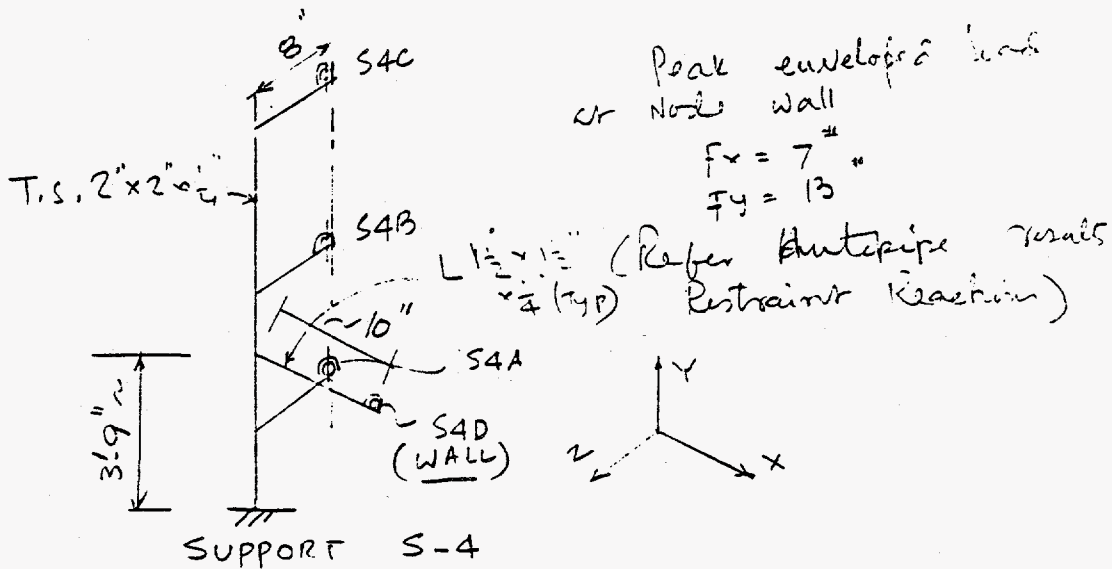 8"
S4C
Peak enveloped load
at Node wall
Fx = 7 #
Fy = 13 #
T.S. 2" x 2" x 1/4"
S4B
L 1 1/2" x 1 1/2" x 1/4 (Typ)
(Refer results
Restraint Reaction)
~10"
S4A
S4D
(WALL)
3'-9" ~
Y
X
Z
SUPPORT S-4